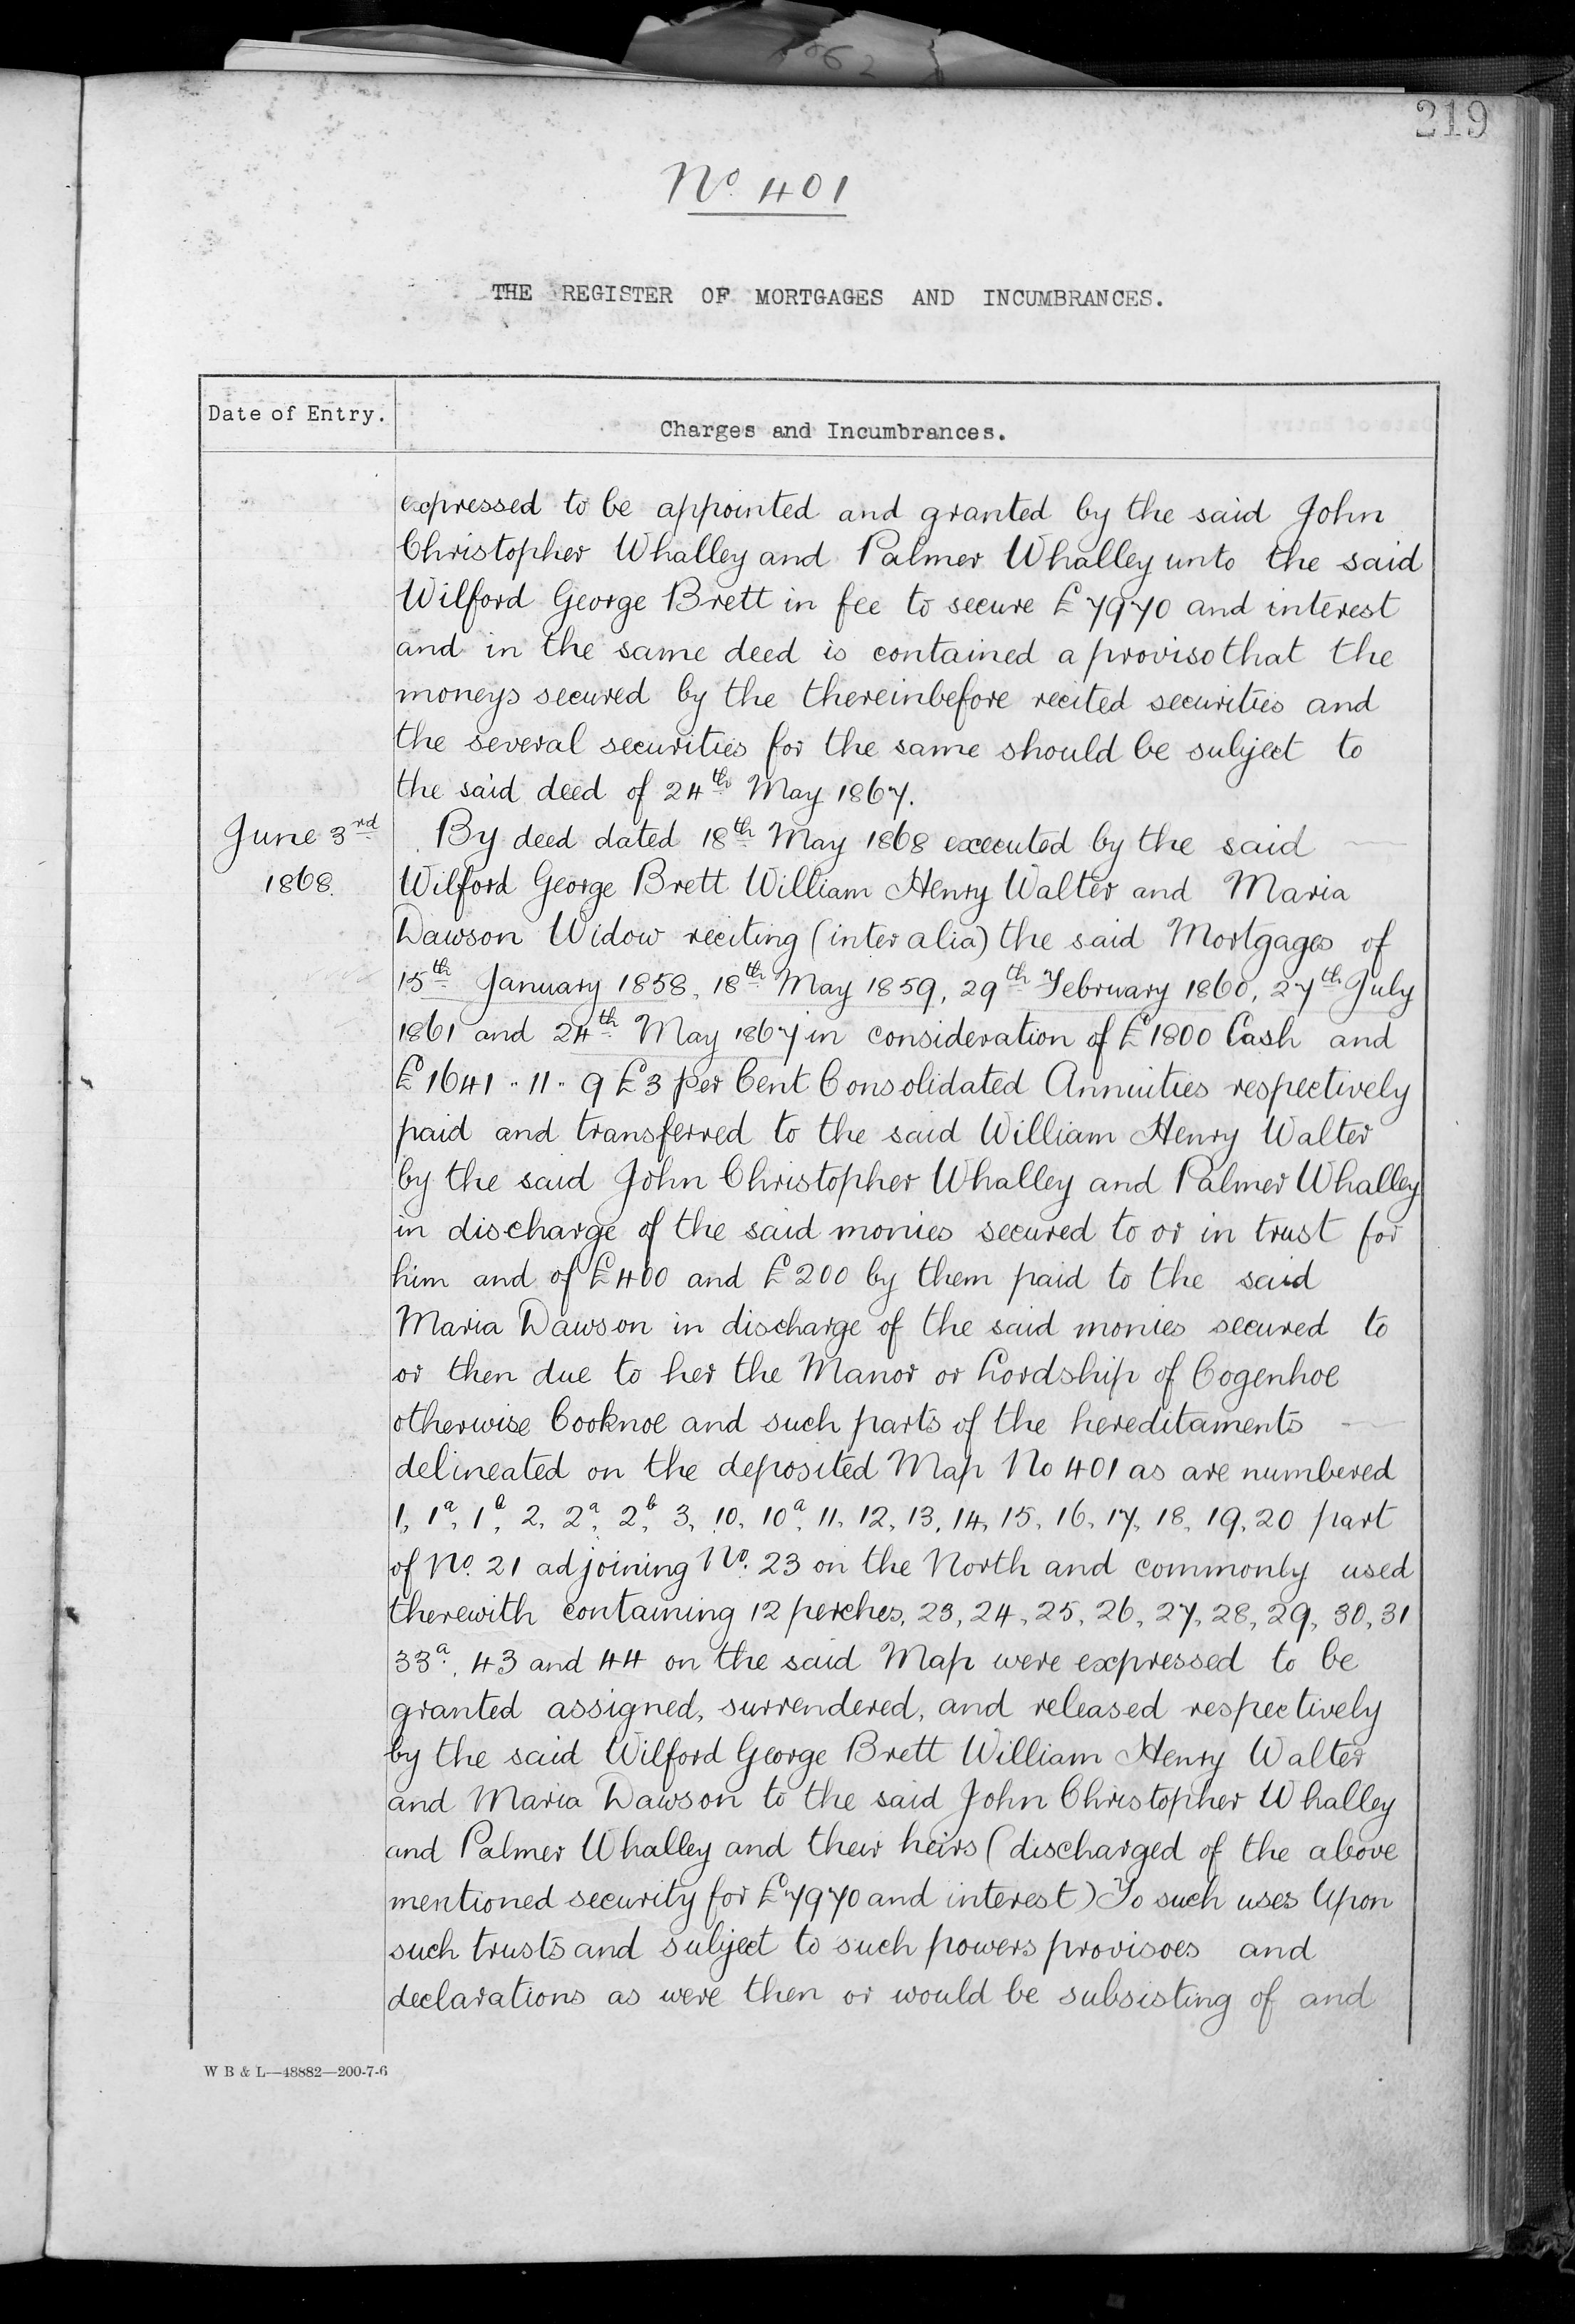 219
No. 401
THE REGISTER OF MORTGAGES AND INCUMBRANCES.
Date of Entry.
Charges and Incumbrances.
expressed to be appointed and granted by the said John
Christopher Whalley and Palmer Whalley unto the said
Wilford George Brett in fee to secure £7970 and interest
and in the same deed is contained a proviso that the
moneys secured by the thereinbefore recited securities and
the several securities for the same should be subject to
the said deed of 24th May 1867.
June 3rd
1868.
By deed dated 18th May 1868 executed by the said
Wilford George Brett William Henry Walter and Maria
Dawson Widow reciting (inter alia) the said Mortgages of
15th January 1858, 18th May 1859, 29th February 1860, 27th July
1861 and 24th May 1867 in consideration of £1800 Cash and
£1641 " 11 " 9 £3 per Cent Consolidated Annuities respectively
paid and transferred to the said William Henry Walter
by the said John Christopher Whalley and Palmer Whalley
in discharge of the said monies secured to or in trust for
him and of £400 and £200 by them paid to the said
Maria Dawson in discharge of the said monies secured to
or then due to her the Manor or Lordship of Cogenhoe
otherwise Cooknoe and such parts of the hereditaments
delineated on the deposited Map No 401 as are numbered
1, 1a, 1b, 2, 2a, 2b, 3, 10, 10a, 11, 12, 13, 14, 15, 16, 17, 18, 19, 20 part
of No. 21 adjoining No. 23 on the North and commonly used
therewith containing 12 perches, 23, 24, 25, 26, 27, 28, 29, 30, 31
33a, 43 and 44 on the said Map were expressed to be
granted assigned, surrendered, and released respectively
by the said Wilford George Brett William Henry Walter
and Maria Dawson to the said John Christopher Whalley
and Palmer Whalley and their heirs (discharged of the above
mentioned security for £7970 and interest) To such uses Upon
such trusts and subject to such powers provisoes and
declarations as were then or would be subsisting of and
W B & L—48882—200-7-6